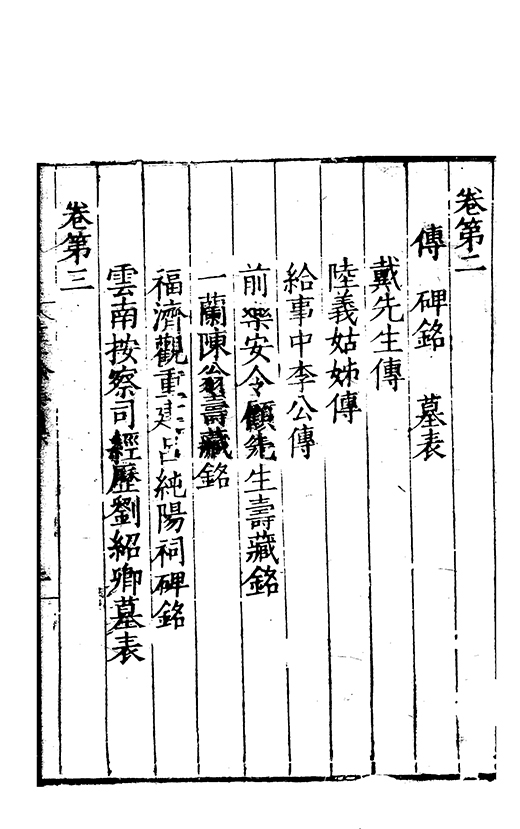 卷第二
傳 碑銘 墓表
戴先生傳
陸義姑姊傳
給事中李公傳
前樂安令顧先生壽藏銘
一蘭陳翁壽藏銘
福濟觀重建呂純陽祠碑銘
雲南按察司經歷劉紹卿墓表
卷第三